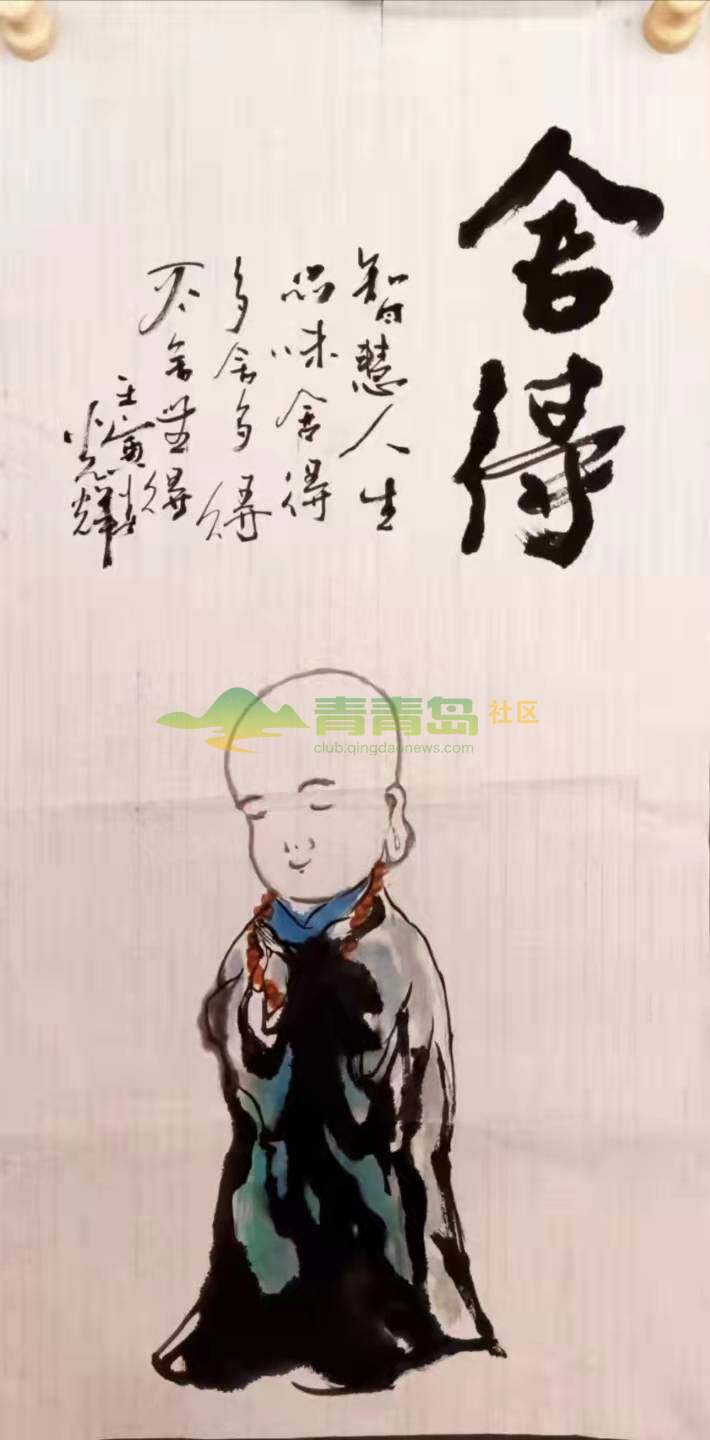 舍得
智慧人生
品味舍得
多舍多得
不舍無得
壬寅
光輝
青青岛社区
club.qingdaonews.com